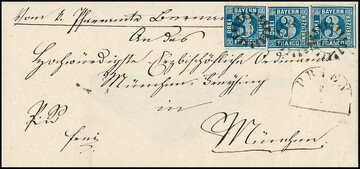 Vom k. Pfarramte
An das
Hochwürdigste Erzbischöfliche Ordinariat
München-Freysing
in
München.
BAYERN
3
KREUZER
FRANCO
BAYERN
3
KREUZER
FRANCO
BAYERN
3
KREUZER
FRANCO
PRIEN